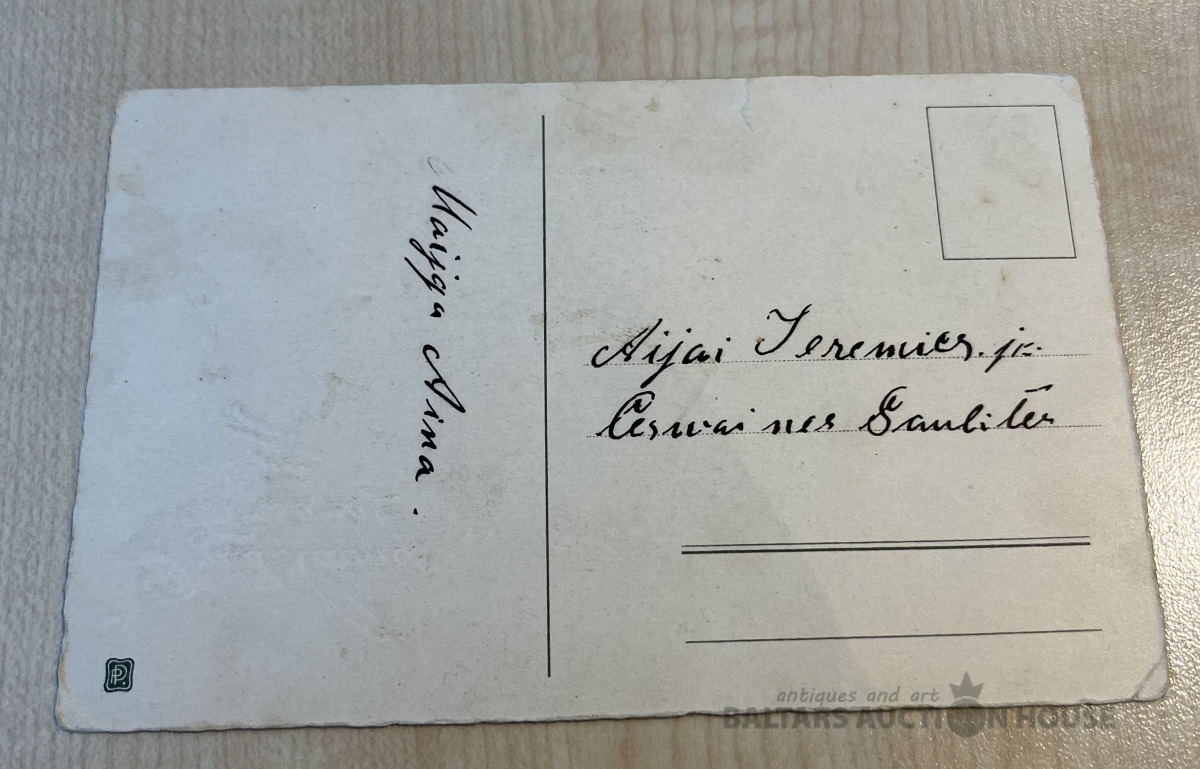 Maijga Aina.
Aijai Jeremics. jr.
Ceswaines Saulītēs
P.
antiques and art
BALTARS AUCTION HOUSE